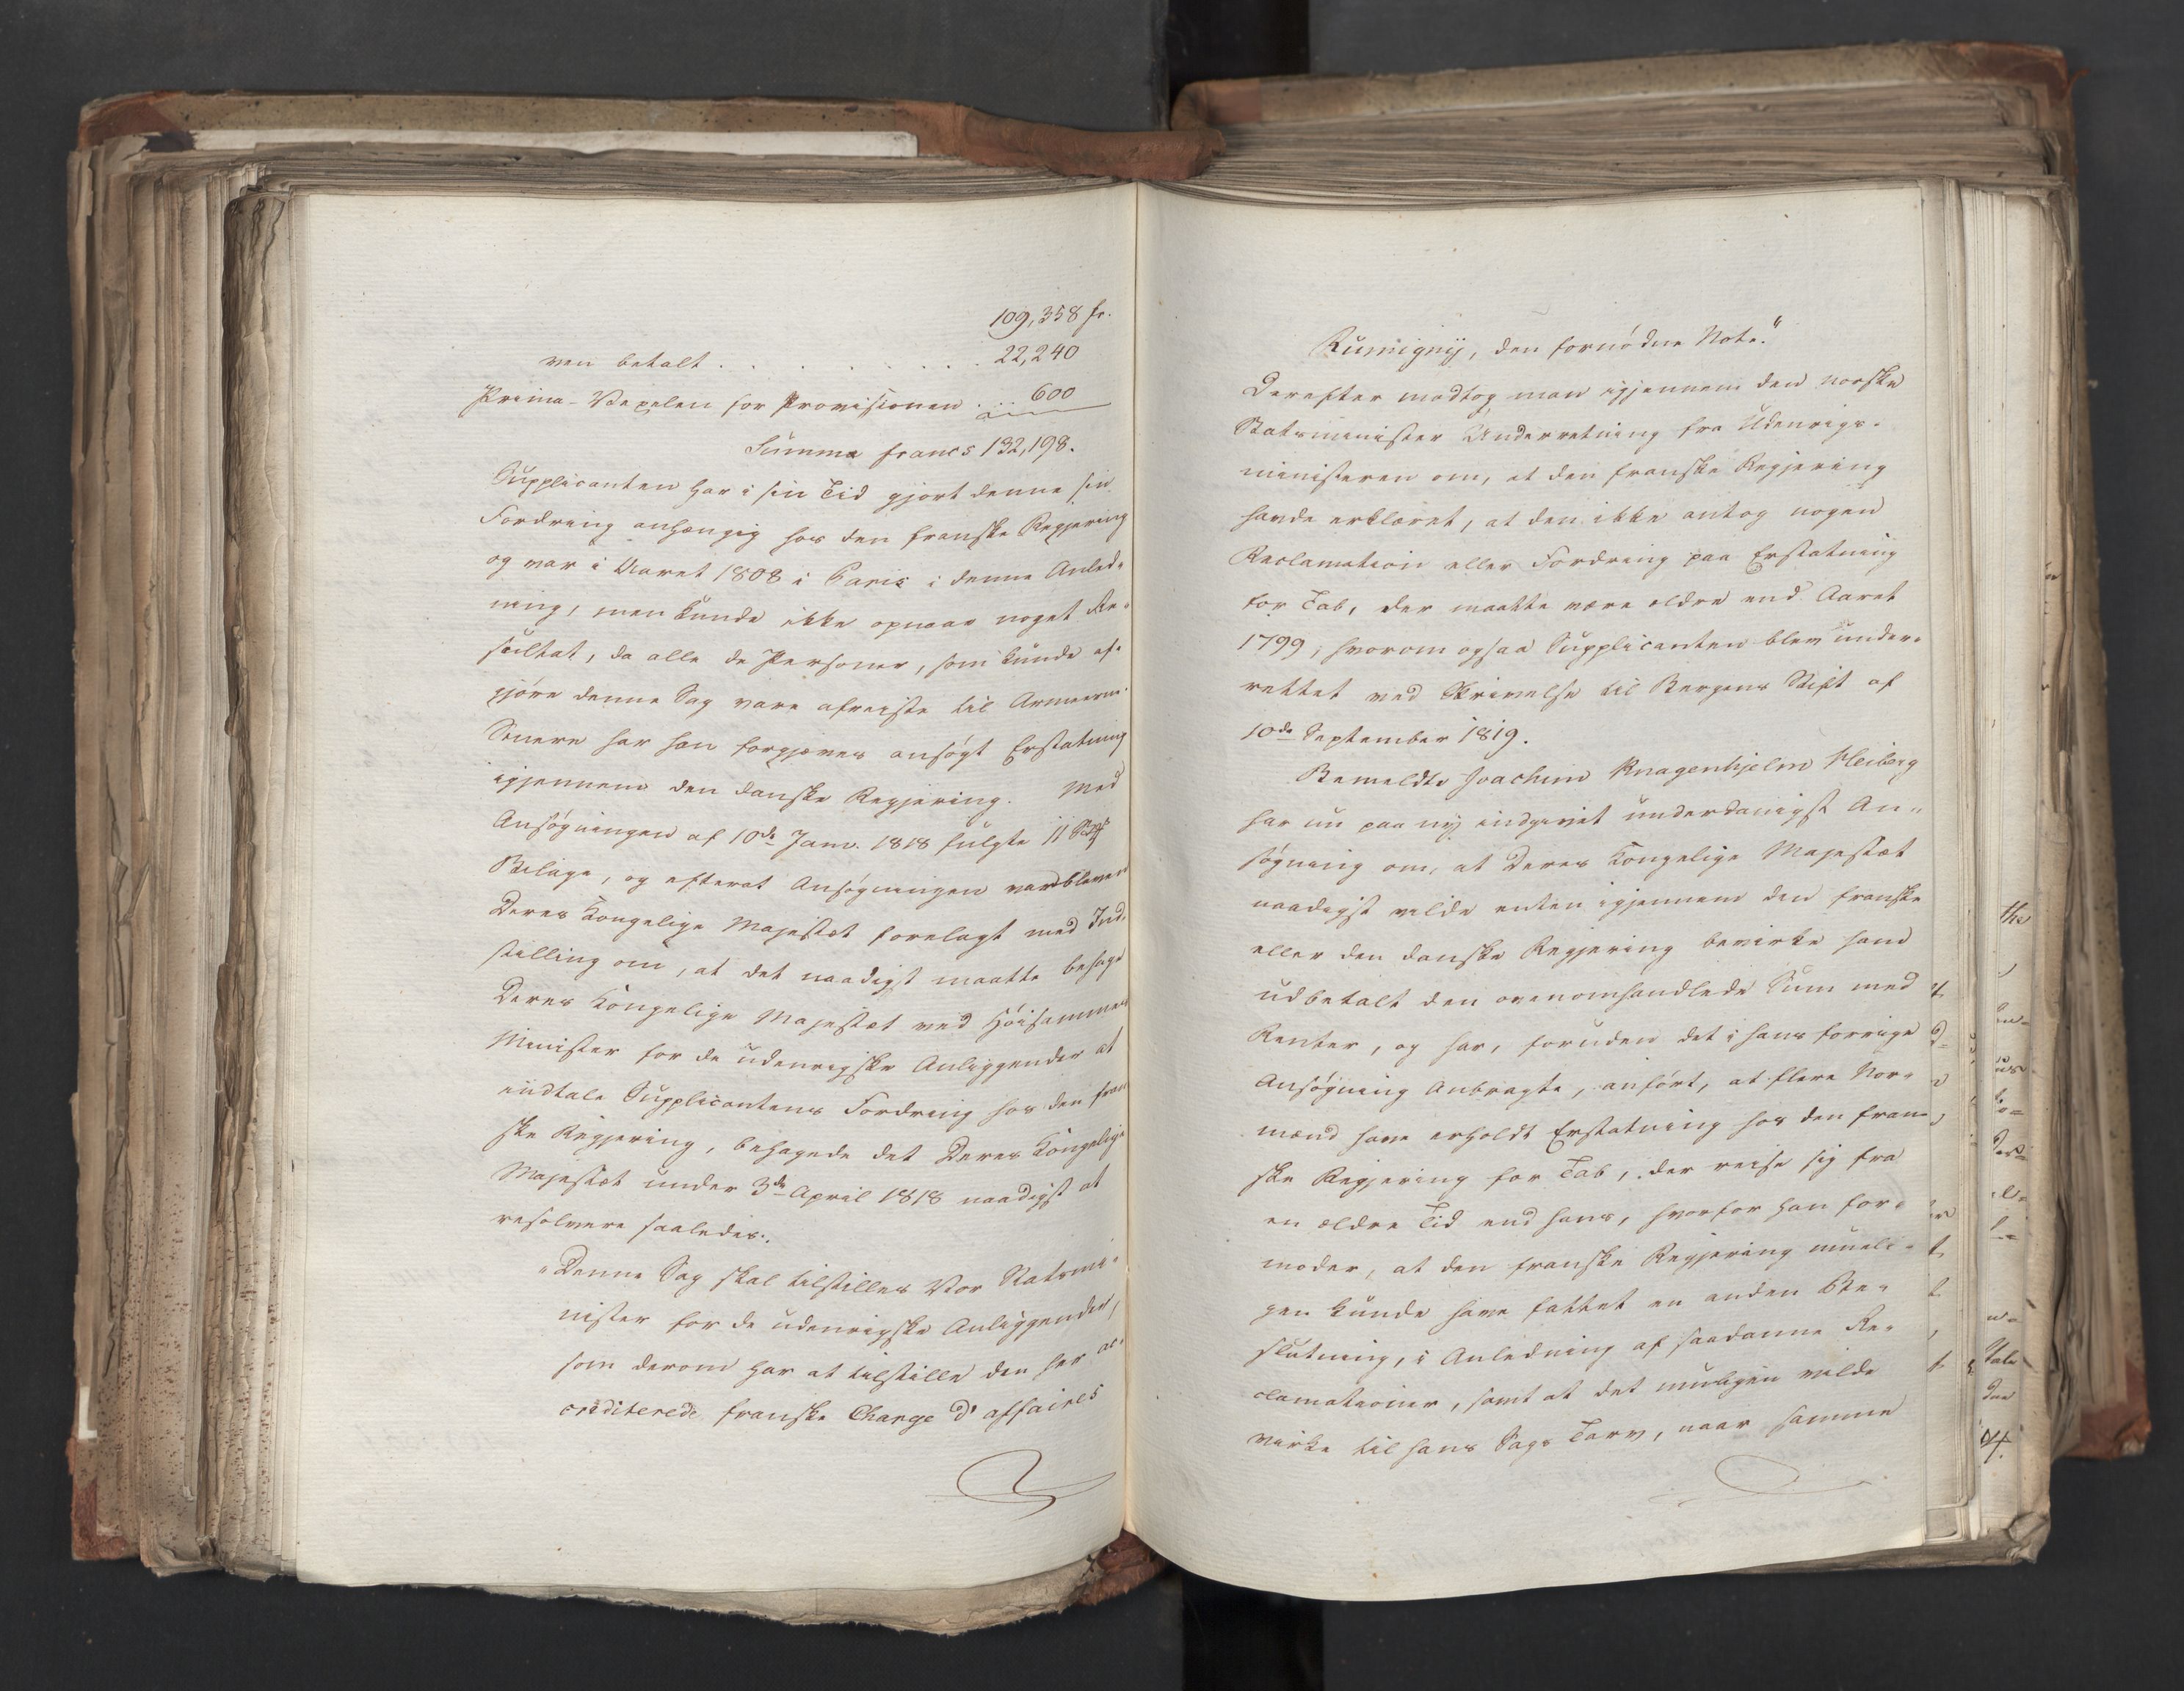 109,358 fr.
ven betalt . . . . . . . . 22,240
Prima-Vexelen for Provisionen . . . 600
Summa francs 132,198.
Supplicanten har i sin Tid gjort denne sin
Fordring anhængig hos den franske Regjering
og var i Aaret 1808 i Paris i denne Anled-
ning, men kunde ikke opnaae noget Re-
sultat, da alle de Personer, som kunde af-
gjøre denne Sag vare afreiste til Armeerne.
Senere har han forgjæves ansøgt Erstatning
igjennem den danske Regjering. Med
Ansøgningen af 10de Janr. 1818 fulgte 11
Bilage, og efterat Ansøgningen var bleven
Deres Kongelige Majestæt forelagt med Ind-
stilling om, at det naadigst maatte behage
Deres Kongelige Majestæt ved Høisammes
Minister for de udenrigske Anliggender at
indtale Supplicantens Fordring hos den fran
ske Regjering, behagede det Deres Kongelige
Majestæt under 3de April 1818 naadigst at
resolvere saaledes:
"Denne Sag skal tilstilles Vor Statsmi-
nister for de udenrigske Anliggender,
som derom har at tilstille den her ac-
crediterede franske Charge d'affaires
Rumignÿ, den fornødne Note."
Derefter modtog man igjennem den norske
Statsminister Underretning fra Udenrigs-
ministeren om, at den franske Regjering
havde erklæret, at den ikke antog nogen
Reclamation eller Fordring paa Erstatning
for Tab, der maatte være ældre end Aaret
1799, hvorom ogsaa Supplicanten blev under-
rettet ved Skrivelse til Bergens Stift af
10de September 1819.
Bemeldte Joachim Knagenhjelm Heiberg
har nu paa nÿ indgivet underdanigst An-
søgning om, at Deres Kongelige Majestæt
naadigst vilde enten igjennem den franske
eller den danske Regjering bevirke ham
udbetalt den ovenomhandlede Sum med
Renter, og har, foruden det i hans forrige
Ansøgning Anbragte, anført, at flere Nor-
mænd have erholdt Erstatning hos den fran-
ske Regjering for Tab, der reise sig fra
en ældre Tid end hans, hvorfor han for-
moder, at den franske Regjering mueli-
gen kunde have fattet en anden Be-
slutning, i Anledning af saadanne Re-
clamationer, samt at det muligen vilde
virke til hans Sags Tarv, naar samme